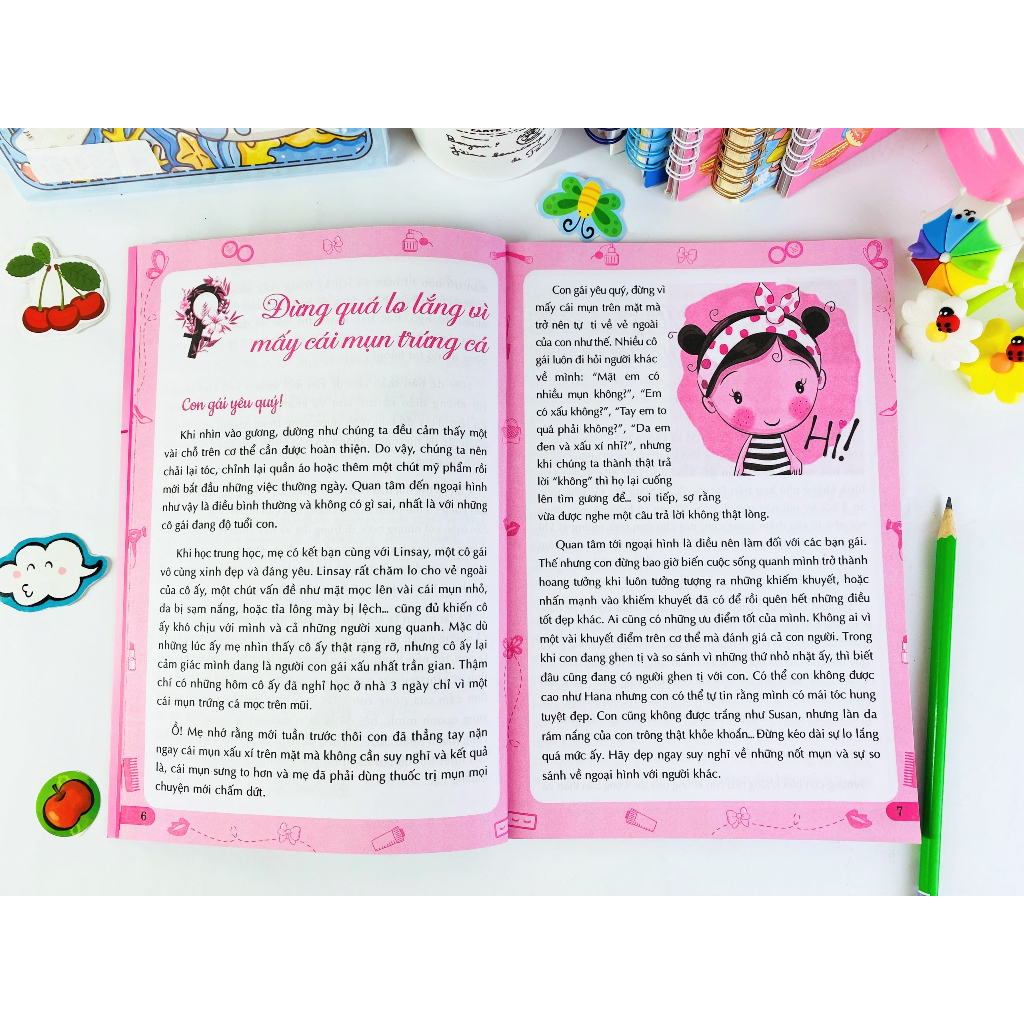 Đừng quá lo lắng vì
mấy cái mụn trứng cá
Con gái yêu quý!
Khi nhìn vào gương, dường như chúng ta đều cảm thấy một
vài chỗ trên cơ thể cần được hoàn thiện. Do vậy, chúng ta nên
chải lại tóc, chỉnh lại quần áo hoặc thêm một chút mỹ phẩm rồi
mới bắt đầu những việc thường ngày. Quan tâm đến ngoại hình
như vậy là điều bình thường và không có gì sai, nhất là với những
cô gái đang độ tuổi con.
Khi học trung học, mẹ có kết bạn cùng với Linsay, một cô gái
vô cùng xinh đẹp và đáng yêu. Linsay rất chăm lo cho vẻ ngoài
của cô ấy, một chút vấn đề như mặt mọc lên vài cái mụn nhỏ,
da bị sạm nắng, hoặc tỉa lông mày bị lệch... cũng đủ khiến cô
ấy khó chịu với mình và cả những người xung quanh. Mặc dù
những lúc ấy mẹ nhìn thấy cô ấy thật rạng rỡ, nhưng cô ấy lại
cảm giác mình đang là người con gái xấu nhất trần gian. Thậm
chí có những hôm cô ấy đã nghỉ học ở nhà 3 ngày chỉ vì một
cái mụn trứng cá mọc trên mũi.
Ồ! Mẹ nhớ rằng mới tuần trước thôi con đã thẳng tay nặn
ngay cái mụn xấu xí trên mặt mà không cần suy nghĩ và kết quả
là, cái mụn sưng to hơn và mẹ đã phải dùng thuốc trị mụn mọi
chuyện mới chấm dứt.
6
Con gái yêu quý, đừng vì
mấy cái mụn trên mặt mà
trở nên tự ti về vẻ ngoài
của con như thế. Nhiều cô
gái luôn đi hỏi người khác
về mình: “Mặt em có
nhiều mụn không?”, “Em
có xấu không?”, “Tay em to
quá phải không?”, “Da em
đen và xấu xí nhỉ?”, nhưng
khi chúng ta thành thật trả
lời “không” thì họ lại cuống
lên tìm gương để... soi tiếp, sợ rằng
vừa được nghe một câu trả lời không thật lòng.
Hi!
Quan tâm tới ngoại hình là điều nên làm đối với các bạn gái.
Thế nhưng con đừng bao giờ biến cuộc sống quanh mình trở thành
hoang tưởng khi luôn tưởng tượng ra những khiếm khuyết, hoặc
nhấn mạnh vào khiếm khuyết đã có để rồi quên hết những điều
tốt đẹp khác. Ai cũng có những ưu điểm tốt của mình. Không ai vì
một vài khuyết điểm trên cơ thể mà đánh giá cả con người. Trong
khi con đang ghen tị và so sánh vì những thứ nhỏ nhặt ấy, thì biết
đâu cũng đang có người ghen tị với con. Có thể con không được
cao như Hana nhưng con có thể tự tin rằng mình có mái tóc hung
tuyệt đẹp. Con cũng không được trắng như Susan, nhưng làn da
rám nắng của con trông thật khỏe khoắn... Đừng kéo dài sự lo lắng
quá mức ấy. Hãy dẹp ngay suy nghĩ về những nốt mụn và sự so
sánh về ngoại hình với người khác.
7